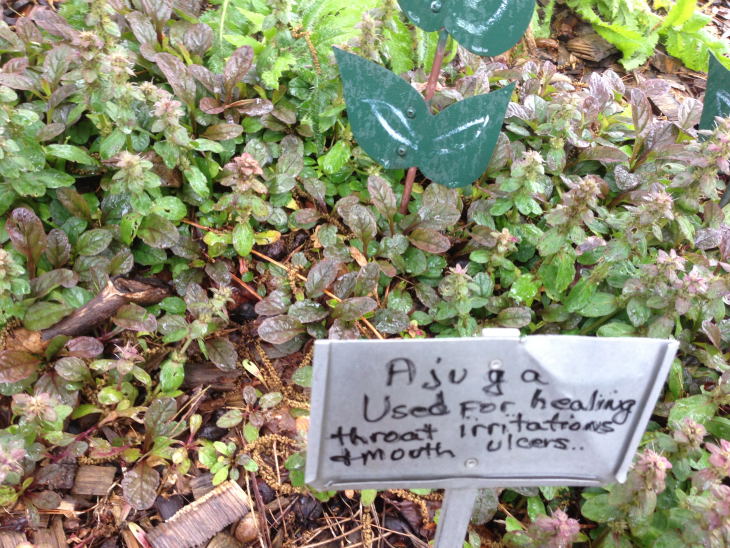 Ajuga
Used For healing
throat irritations
& mouth ulcers..